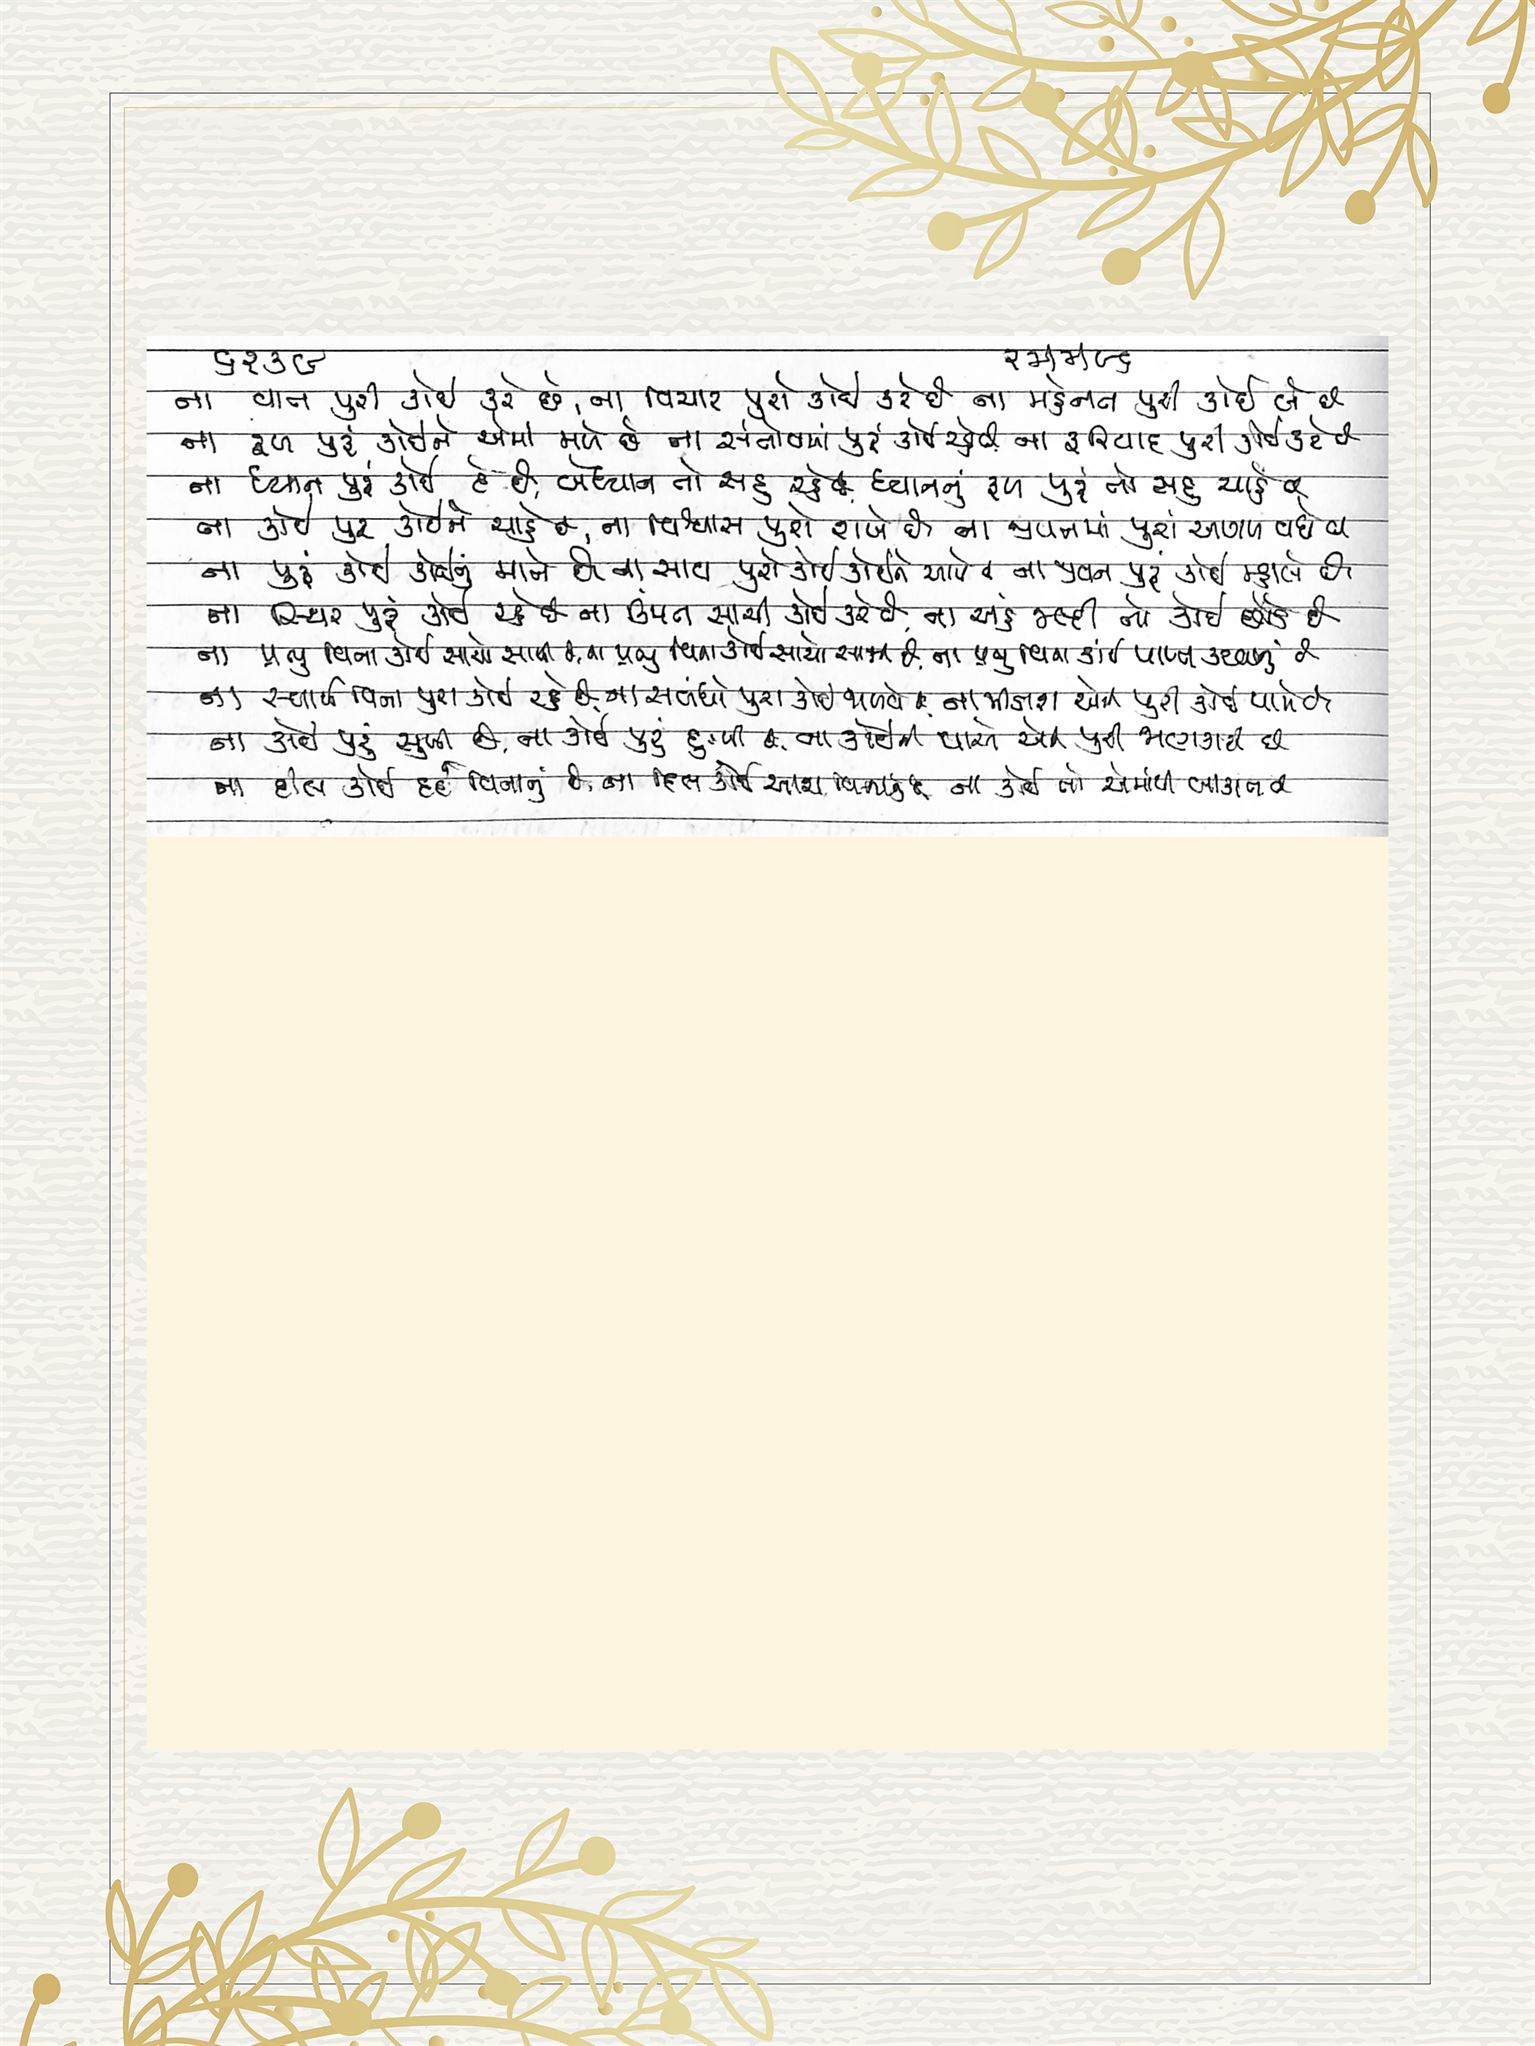 ૬૨૩૯
ના વાત પુરી કોઈ કરે છે, ના વિચાર પુરો કોઈ કરે છે ના મહેનત પુરી કોઈ કરે છે
ના ફળ પુરું કોઈને એમાં મળે છે ના સંતોષમાં પુરું કોઈ રહે છે ના ફરિયાદ પુરી કોઈ કરે છે
ના ધ્યાન પુરું કોઈ દે છે, બેધ્યાન તો સહુ રહે છે ધ્યાનનું ફળ પુરું તો સહુ ચાહે છે
ના કોઈ પુરું કોઈને ચાહે છે, ના વિશ્વાસ પુરો રાખે છે ના જીવનમાં પુરાં આગળ વધે છે
ના પુરું કોઈ કોઈનું માને છે ના સાથ પુરો કોઈ કોઈને આપે છે ના જીવન પુરું કોઈ છે
ના સ્થિર પુરું કોઈ રહે છે ના સાચી કોઈ કરે છે, ના અહં જલ્દી તો કોઈ છોડે છે
ના પ્રભુ વિના કોઈ સાચો છે, ના પ્રભુ વિના કોઈ સાચો છે, ના પ્રભુ વિના કોઈ છે
ના સ્વાર્થ વિના પુરા કોઈ રહે છે, ના સબંધો પુરા કોઈ જાળવે છે, ના પુરી કોઈ પામે છે
ના કોઈ પુરું સુખી છે, ના કોઈ પુરું દુઃખી છે, ના કોઈની પાસે એની પુરી જાણકારી છે
ના દીલ કોઈ દર્દ વિનાનું છે, ના દિલ કોઈ આશ વિનાનું છે ના કોઈ તો એમાંથી બાકાત છે